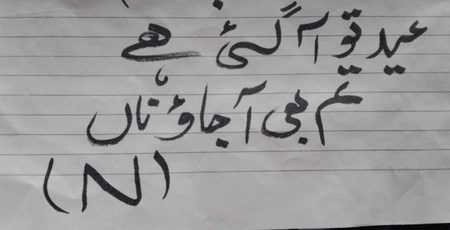 عید تو آ گئی ہے
تم بھی آ جاؤ ناں
(N)